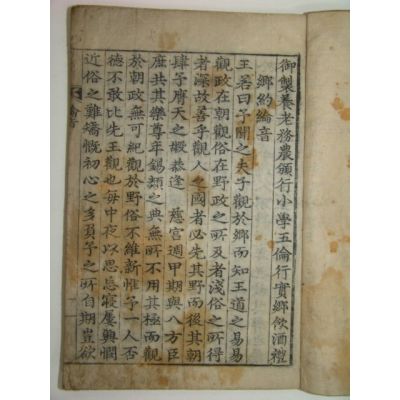 御製養老務農頒行小學五倫行實鄕飮酒禮
鄕約綸音
王若曰予聞之夫子觀於鄕而知王道之易易
觀政在朝觀俗在野政之所及者淺俗之所得
者深故善乎觀人之國者必先其野而後其朝
肆予膺天之嘏恭逢 慈宮週甲期與八方臣
庶共其樂尊年錫類之典無所不用其極而觀
於朝政無可紀觀於野俗不維新惟予一人否
德不敢比先王觀也每中夜以思忘寢屢興憫
近俗之難矯慨初心之多負予之所自期豈欲
綸音